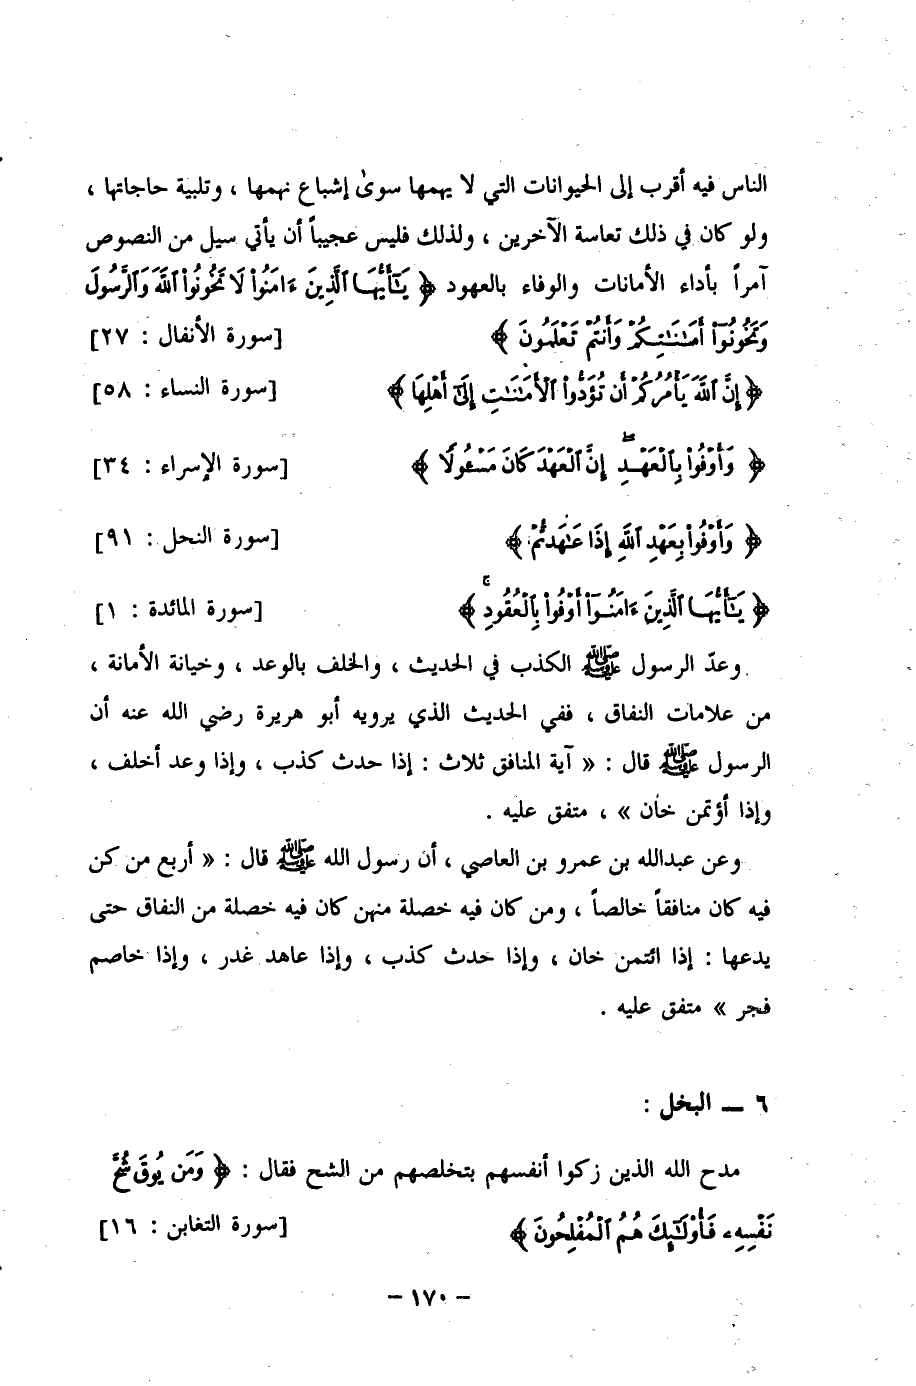 الناس فيه أقرب إلى الحيوانات التي لا يهمها سوىٰ إشباع نهمها ، وتلبية حاجاتها ،
ولو كان في ذلك تعاسة الآخرين ، ولذلك فليس عجيباً أن يأتي سيل من النصوص
آمراً بأداء الأمانات والوفاء بالعهود ﴿ يَٰٓأَيُّهَا ٱلَّذِينَ ءَامَنُوا۟ لَا تَخُونُوا۟ ٱللَّهَ وَٱلرَّسُولَ
وَتَخُونُوٓا۟ أَمَٰنَٰتِكُمْ وَأَنتُمْ تَعْلَمُونَ ﴾ [سورة الأنفال : ٢٧]
﴿ إِنَّ ٱللَّهَ يَأْمُرُكُمْ أَن تُؤَدُّوا۟ ٱلْأَمَٰنَٰتِ إِلَىٰٓ أَهْلِهَا ﴾ [سورة النساء : ٥٨]
﴿ وَأَوْفُوا۟ بِٱلْعَهْدِ ۖ إِنَّ ٱلْعَهْدَ كَانَ مَسْـُٔولًا ﴾ [سورة الإسراء : ٣٤]
﴿ وَأَوْفُوا۟ بِعَهْدِ ٱللَّهِ إِذَا عَٰهَدتُّمْ ﴾ [سورة النحل : ٩١]
﴿ يَٰٓأَيُّهَا ٱلَّذِينَ ءَامَنُوٓا۟ أَوْفُوا۟ بِٱلْعُقُودِ ۚ ﴾ [سورة المائدة : ١]
وعدّ الرسول ﷺ الكذب في الحديث ، والخلف بالوعد ، وخيانة الأمانة ،
من علامات النفاق ، ففي الحديث الذي يرويه أبو هريرة رضي الله عنه أن
الرسول ﷺ قال : « آية المنافق ثلاث : إذا حدث كذب ، وإذا وعد أخلف ،
وإذا أؤتمن خان » ، متفق عليه .
وعن عبدالله بن عمرو بن العاصي ، أن رسول الله ﷺ قال : « أربع من كن
فيه كان منافقاً خالصاً ، ومن كان فيه خصلة منهن كان فيه خصلة من النفاق حتى
يدعها : إذا ائتمن خان ، وإذا حدث كذب ، وإذا عاهد غدر ، وإذا خاصم
فجر » متفق عليه .
٦ ــ البخل :
مدح الله الذين زكوا أنفسهم بتخلصهم من الشح فقال : ﴿ وَمَن يُوقَ شُحَّ
نَفْسِهِۦ فَأُو۟لَٰٓئِكَ هُمُ ٱلْمُفْلِحُونَ ﴾ [سورة التغابن : ١٦]
- ١٧٠ -